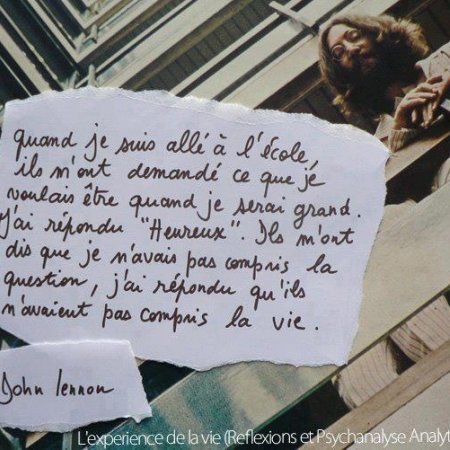 quand je suis allé à l'école,
ils m'ont demandé ce que je
voulais être quand je serai grand.
J'ai répondu "Heureux". Ils m'ont
dis que je n'avais pas compris la
question, j'ai répondu qu'ils
n'avaient pas compris la vie.
John lennon
L'experience de la vie (Reflexions et Psychanalyse Analyt